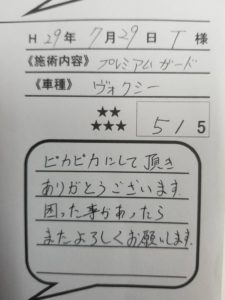 H 29年 7月29日 T 様
《施術内容》 プレミアムガード
《車種》 ヴォクシー
★★
★★★
5/5
ピカピカにして頂き
ありがとうございます
困った事があったら
またよろしくお願いします.